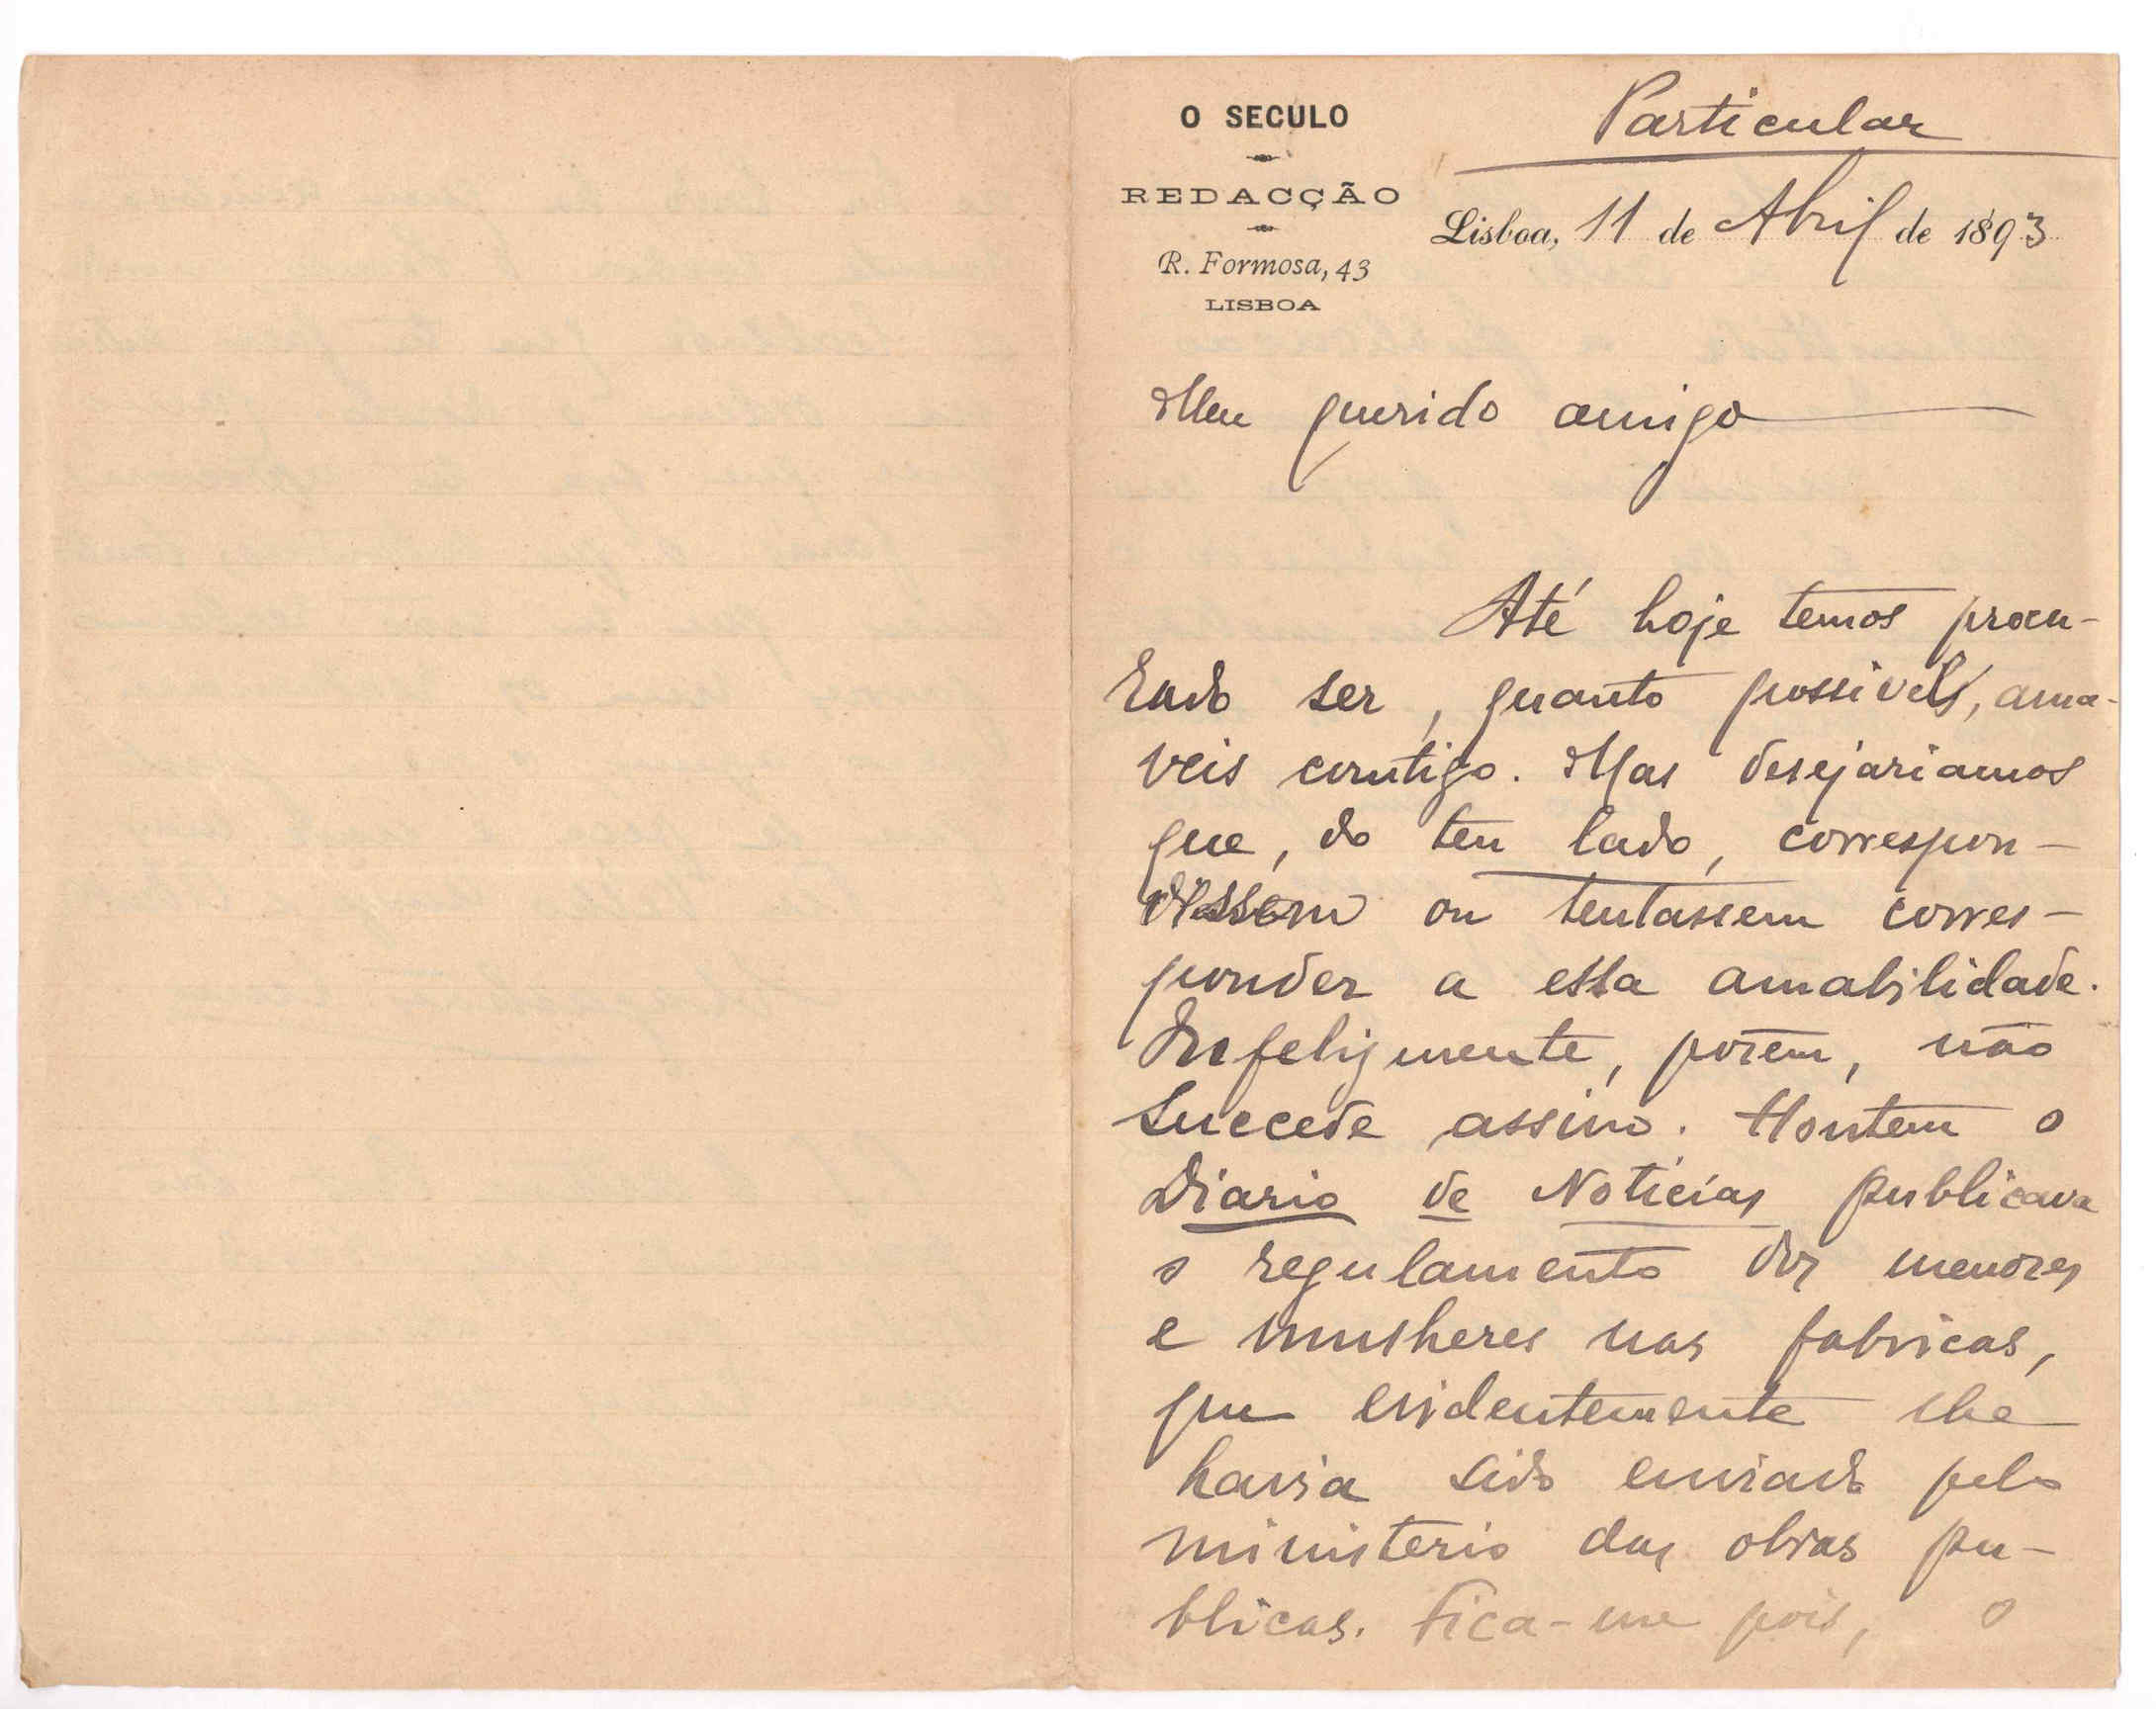 O SECULO
REDACÇÃO
R. Formosa, 43
LISBOA
Particular
Lisboa, 11 de Abril de 1893
Meu querido amigo
Até hoje temos procu-
rado ser, quanto possivel, ama-
veis comtigo. Mas desejariamos
que, do teu lado, correspon-
dessem ou tentassem corres-
ponder a essa amabilidade.
Infelizmente, porém, não
succede assim. Hontem o
Diario de Noticias publicava
o regulamento dos menores
e mulheres nas fabricas,
que evidentemente lhe
havia sido enviado pelo
ministerio das obras pu-
blicas. Fica-me pois, o